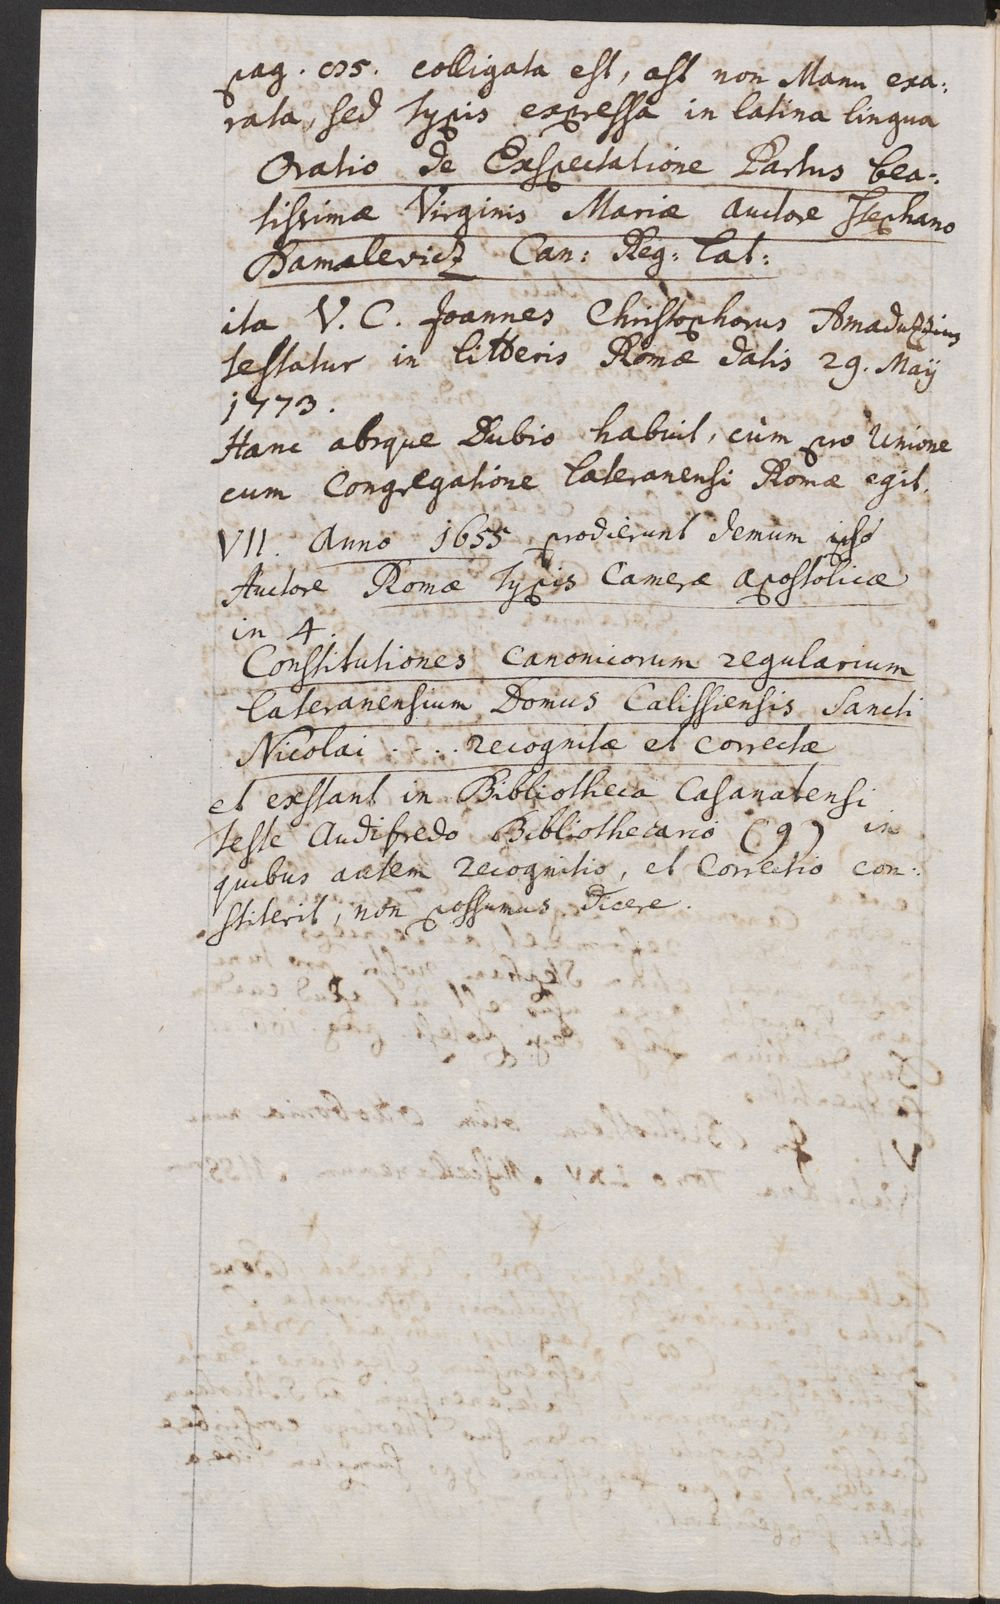 pag. 85. colligata est, ast non Manu exa:
rata, sed typis expressa in latina lingua
Oratio de Exspectatione Partus bea:
tissimæ Virginis Mariæ auctore Stephano
Damalevicz Can: Reg: Lat:
ita V. C. Joannes Christophorus Amaduzzius
testatur in litteris Romæ datis 29. Maij
1773.
Hanc absque Dubio habuit, cùm pro Unione
cum Congregatione Lateranensi Romæ egit.
VII. Anno 1655 prodierunt demum ipso
Auctore Romæ typis Cameræ apostolicæ
in 4.
Constitutiones canonicorum regularium
Lateranensium Domus Calissiensis Sancti
Nicolai . . . . recognitæ et correctæ
et exstant in Bibliotheca Casanatensi
teste Audifredo Bibliothecario (9) in
quibus autem recognitio, et Correctio con:
stiterit, non possumus dicere.